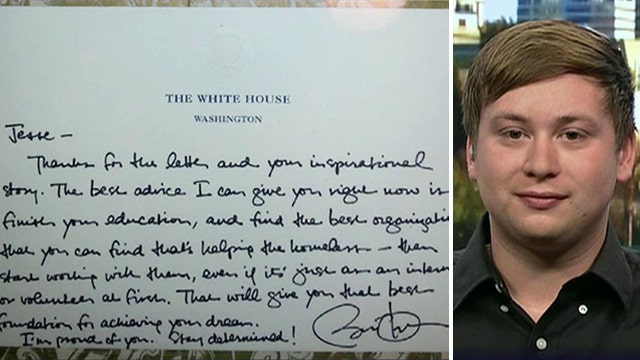 THE WHITE HOUSE
WASHINGTON
Jesse —
Thanks for the letter and your inspirational
story. The best advice I can give you right now is
finish your education, and find the best organizati
that you can find that's helping the homeless — then
start working with them, even if it's just as an intern
or volunteer at first. That will give you that best
foundation for achieving your dream.
I'm proud of you. Stay determined!